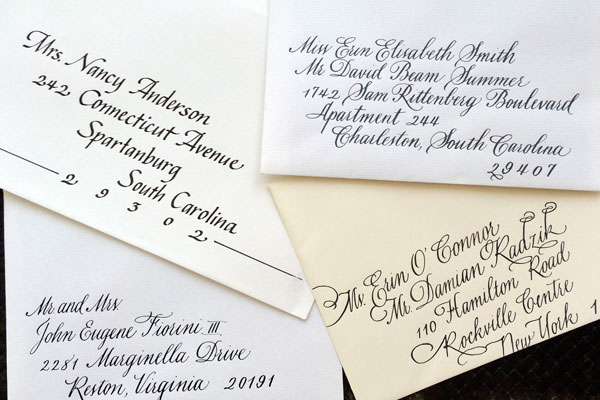 Mrs. Nancy Anderson
242 Connecticut Avenue
Spartanburg
South Carolina
29302
Miss Erin Elisabeth Smith
Mr David Beam Summer
1742 Sam Rittenberg Boulevard
Apartment 244
Charleston, South Carolina
29407
Mr and Mrs
John Eugene Fiorini III
2281 Marginella Drive
Reston, Virginia 20191
Ms. Erin O'Connor
Mr. Damian Radzik
110 Hamilton Road
Rockville Centre
New York 1